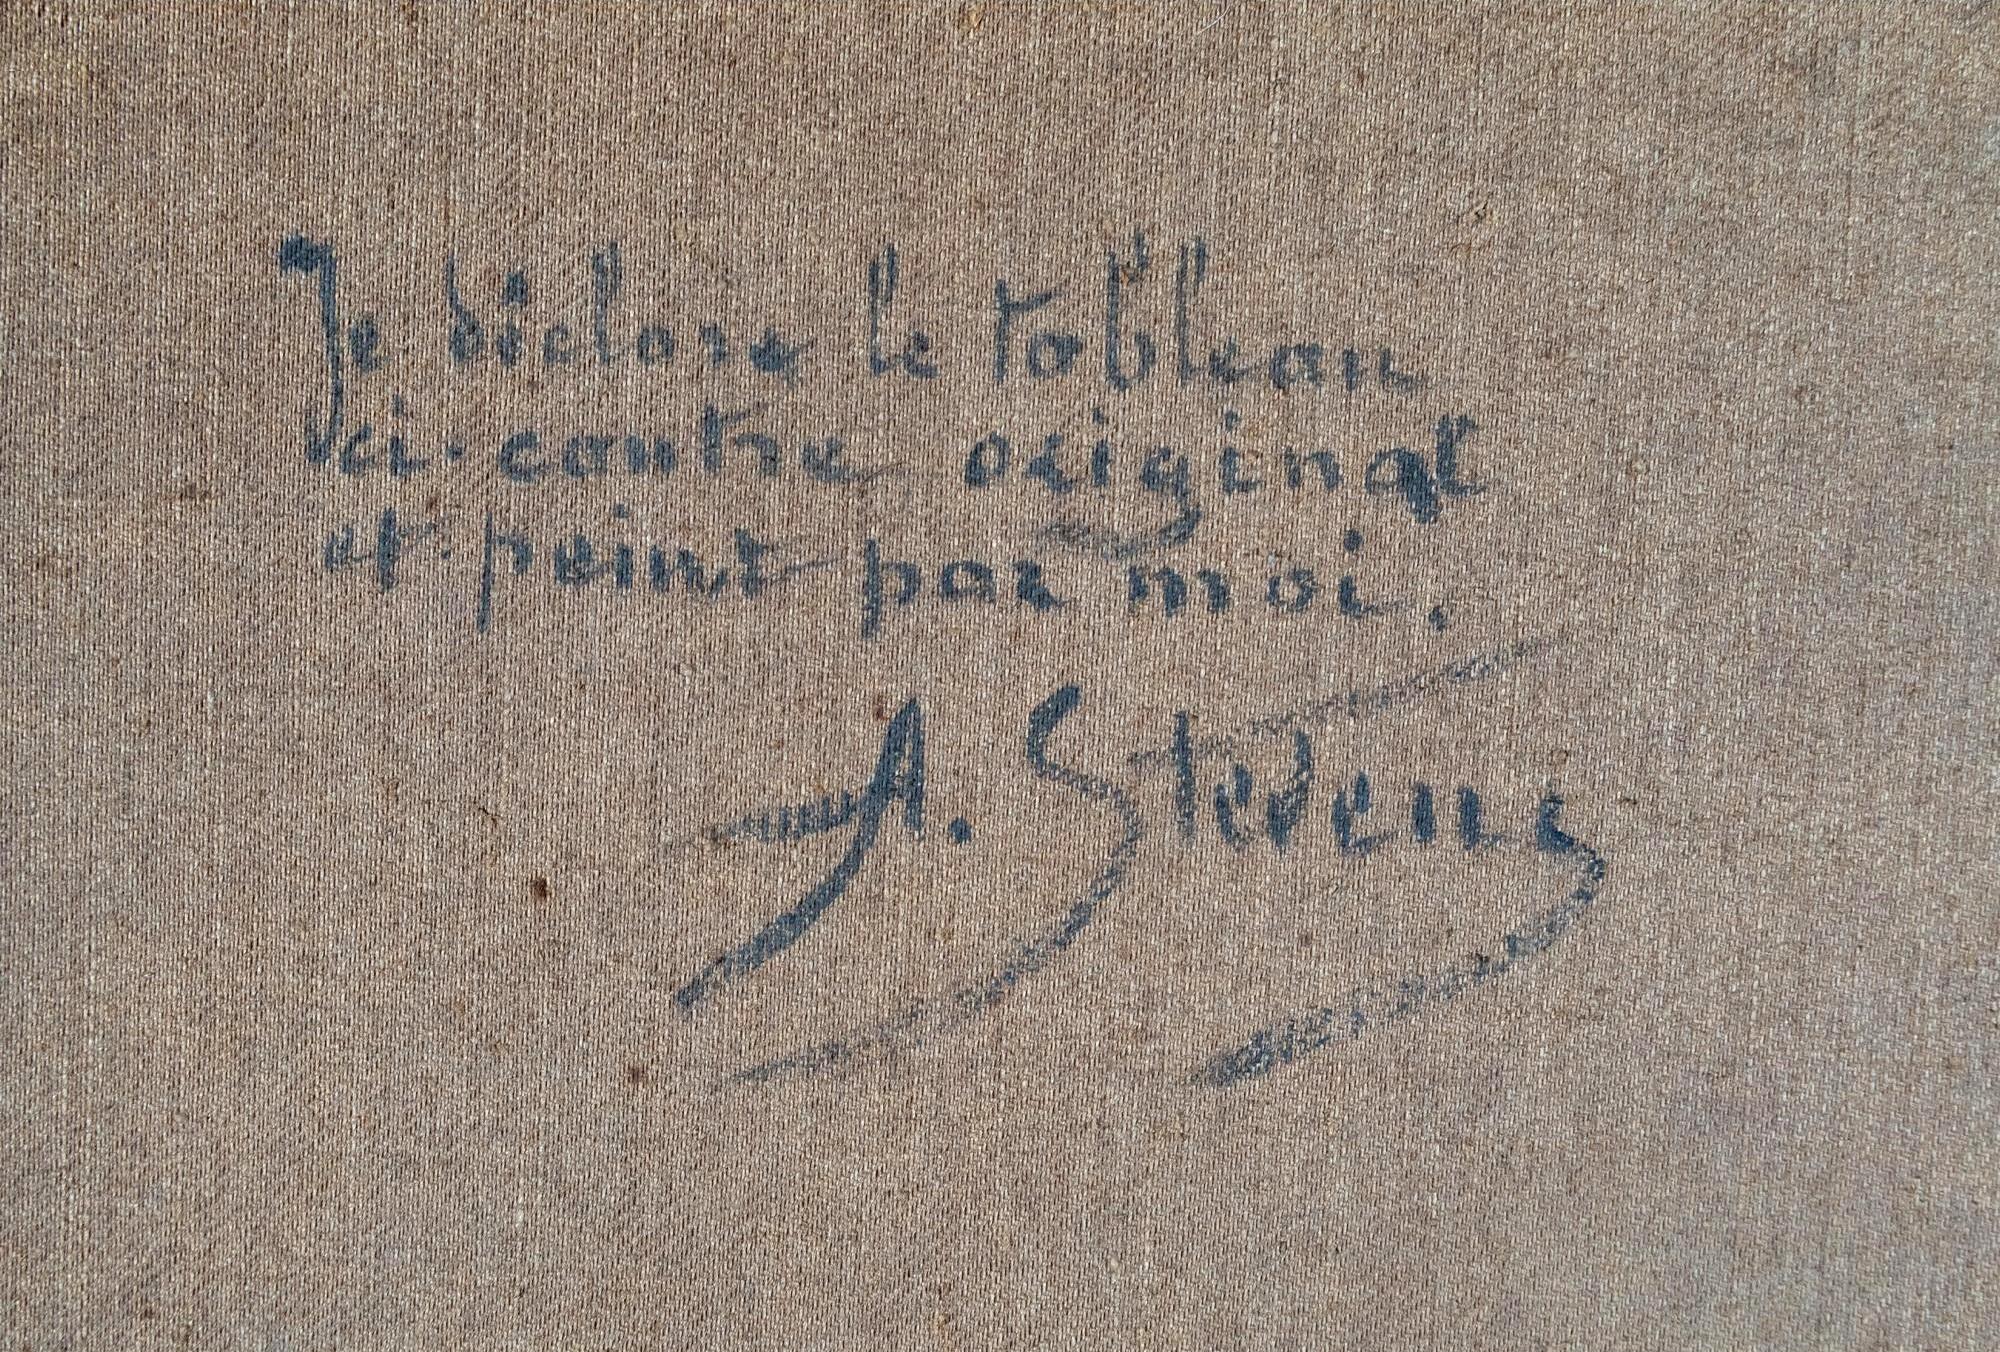 Je déclare le tableau
ci-contre original
et peint par moi.
A. Stevens